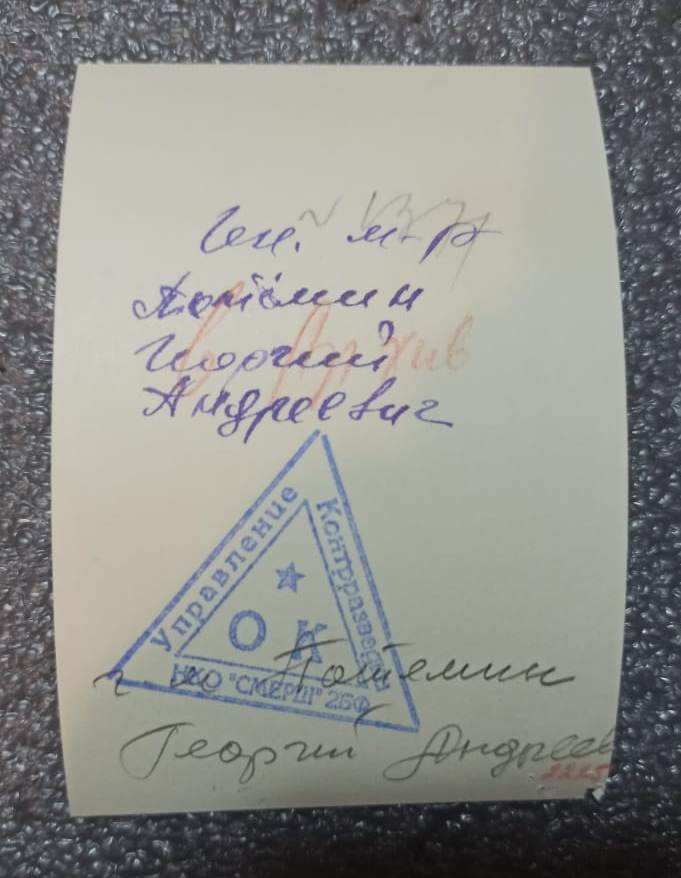 Ген. м-р
Потёмин
Георгий
Андреевич
в Архив
Управление
Контрразведки
НКО "СМЕРШ" 2БФ
О К
г. м. Потемин
Георгий Андреев
2225